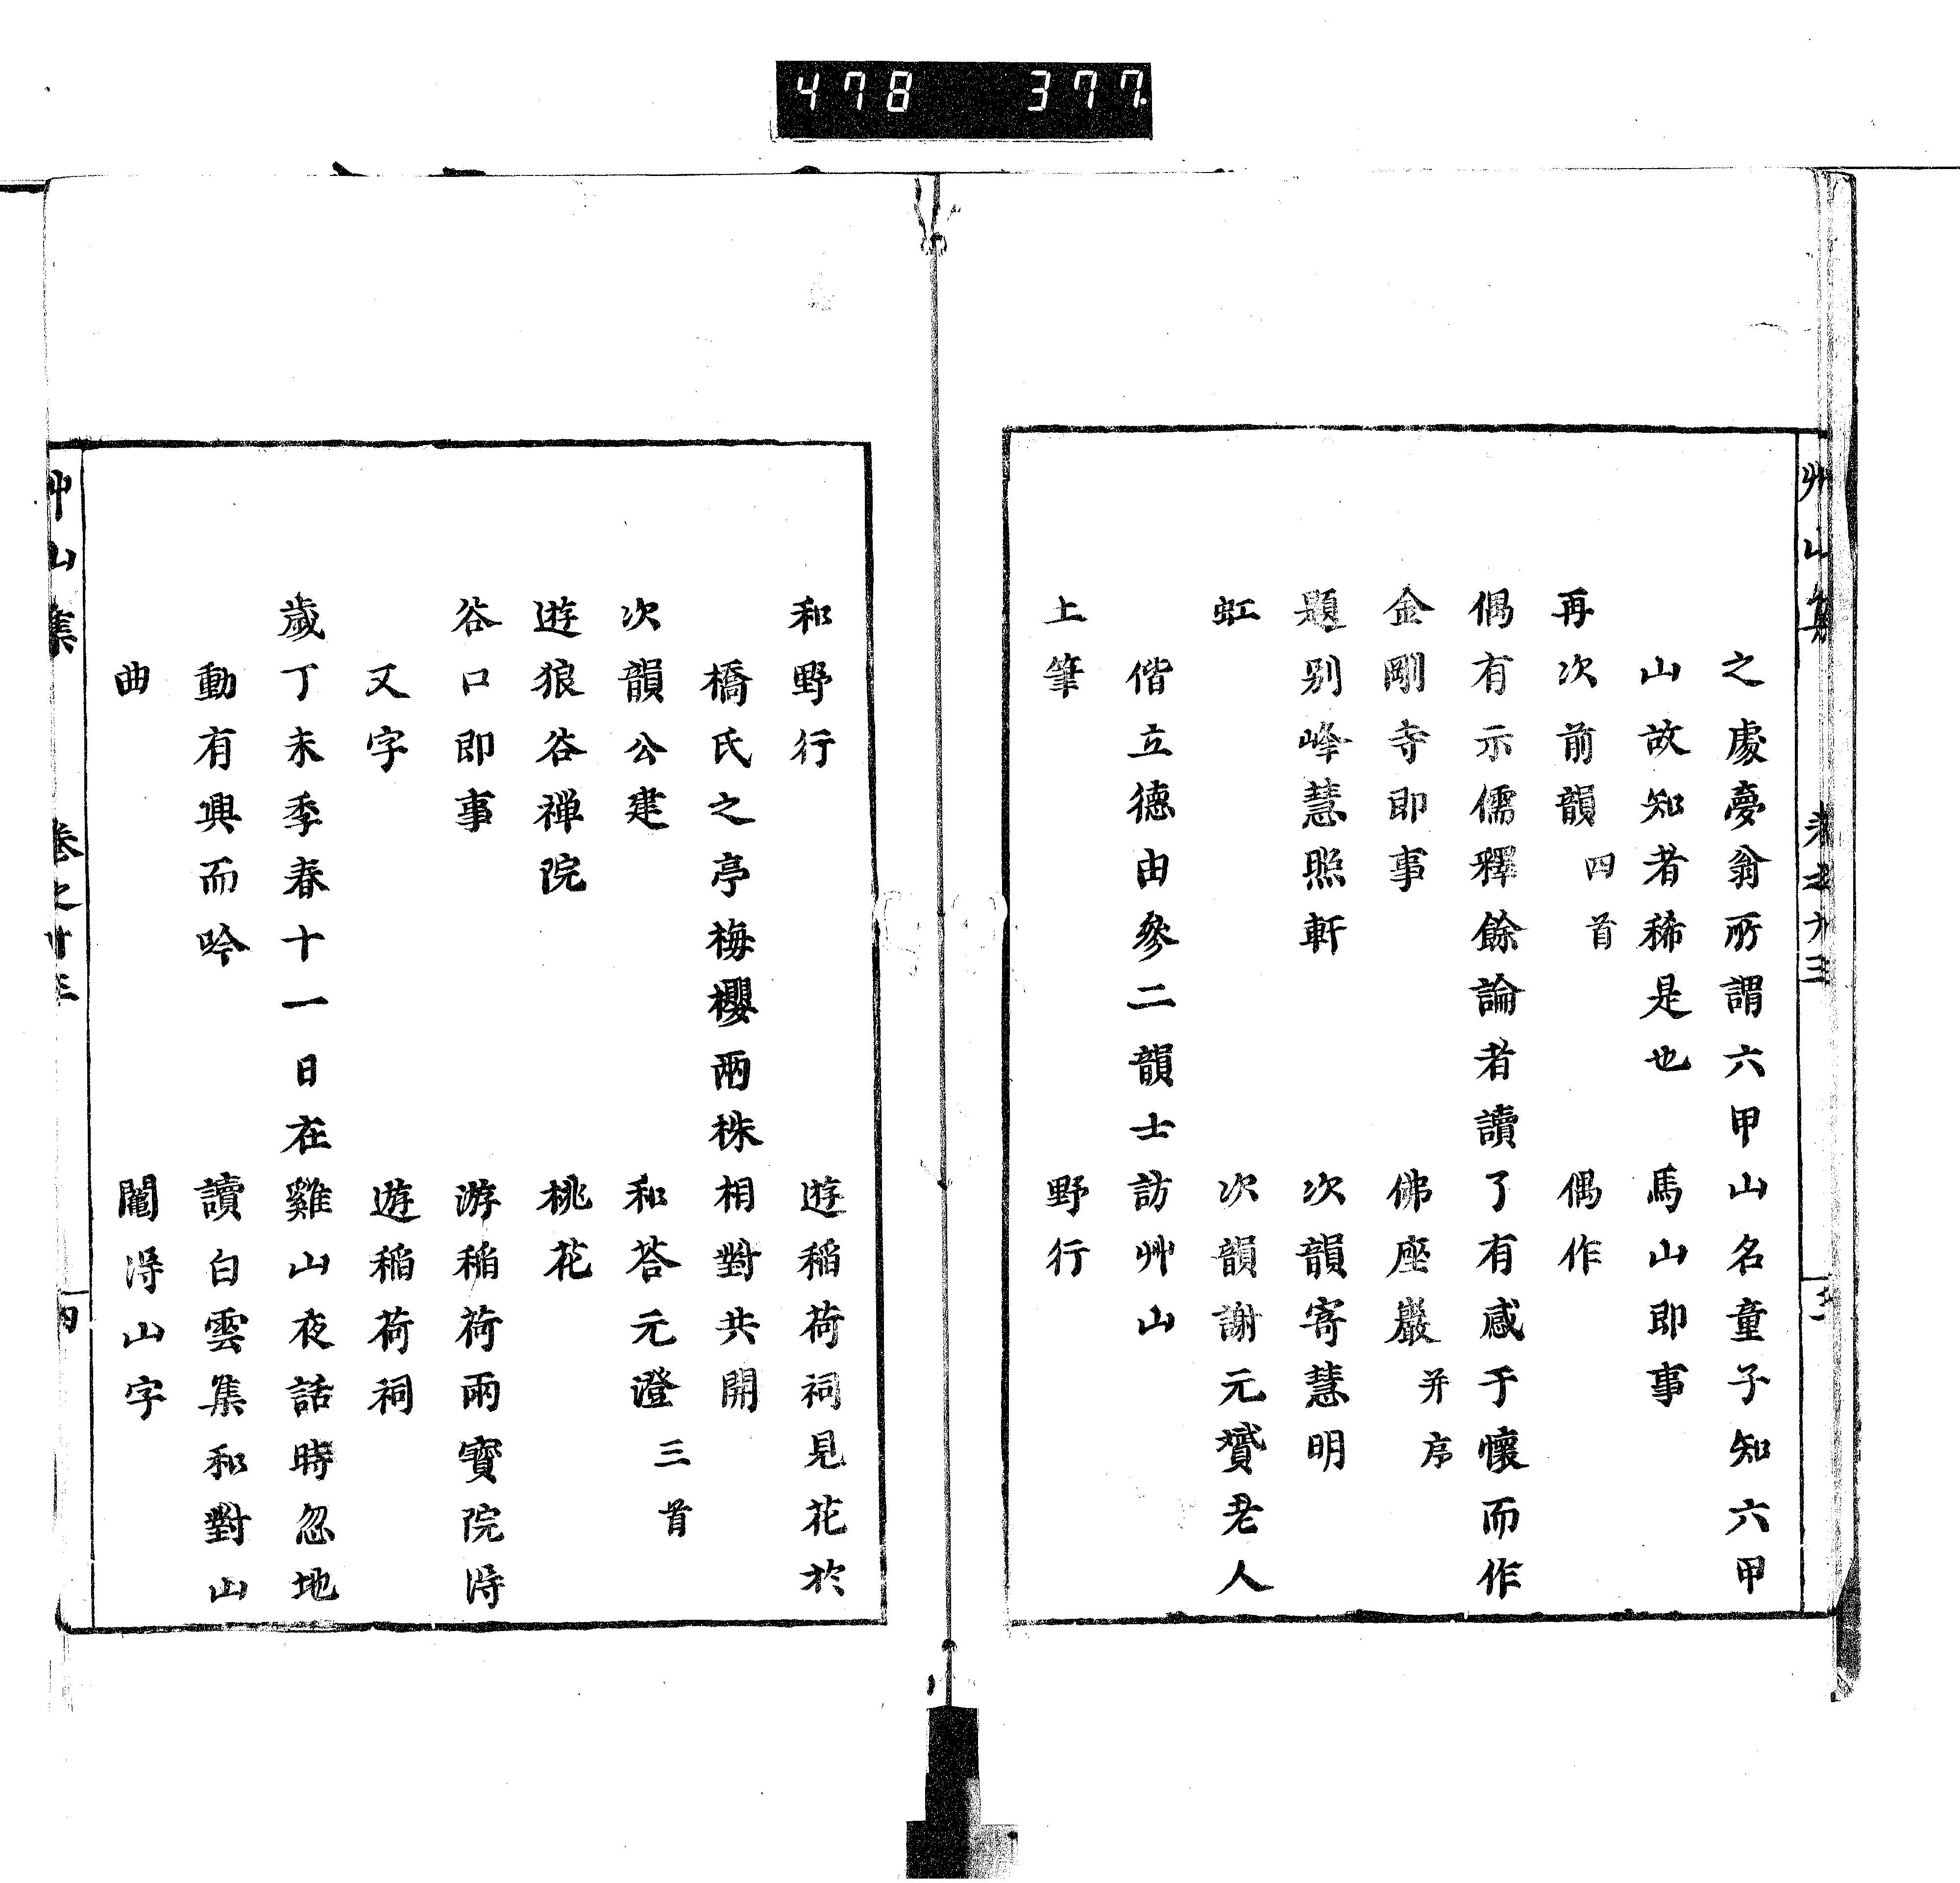 478 377
艸山集 卷之廿三
之處夢翁所謂六甲山名童子知六甲
山故知者稀是也 馬山即事
再次前韻四首 偶作
偶有示儒釋餘論者讀了有感于懷而作
金剛寺即事 佛座巖并序
題別峰慧照軒 次韻寄慧明
虹 次韻謝元贇老人
偕立德由參二韻士訪艸山
上筆 野行
和野行 遊稲荷祠見花於
橋氏之亭梅櫻兩株相對共開
次韻公建 和荅元澄三首
遊狼谷禅院 桃花
谷口即事 游稲荷兩寳院淂
又字 遊稲荷祠
歲丁未季春十一日在雞山夜話時忽地
動有興而吟 讀白雲集和對山
曲 鬮淂山字
艸山集 卷之廿三